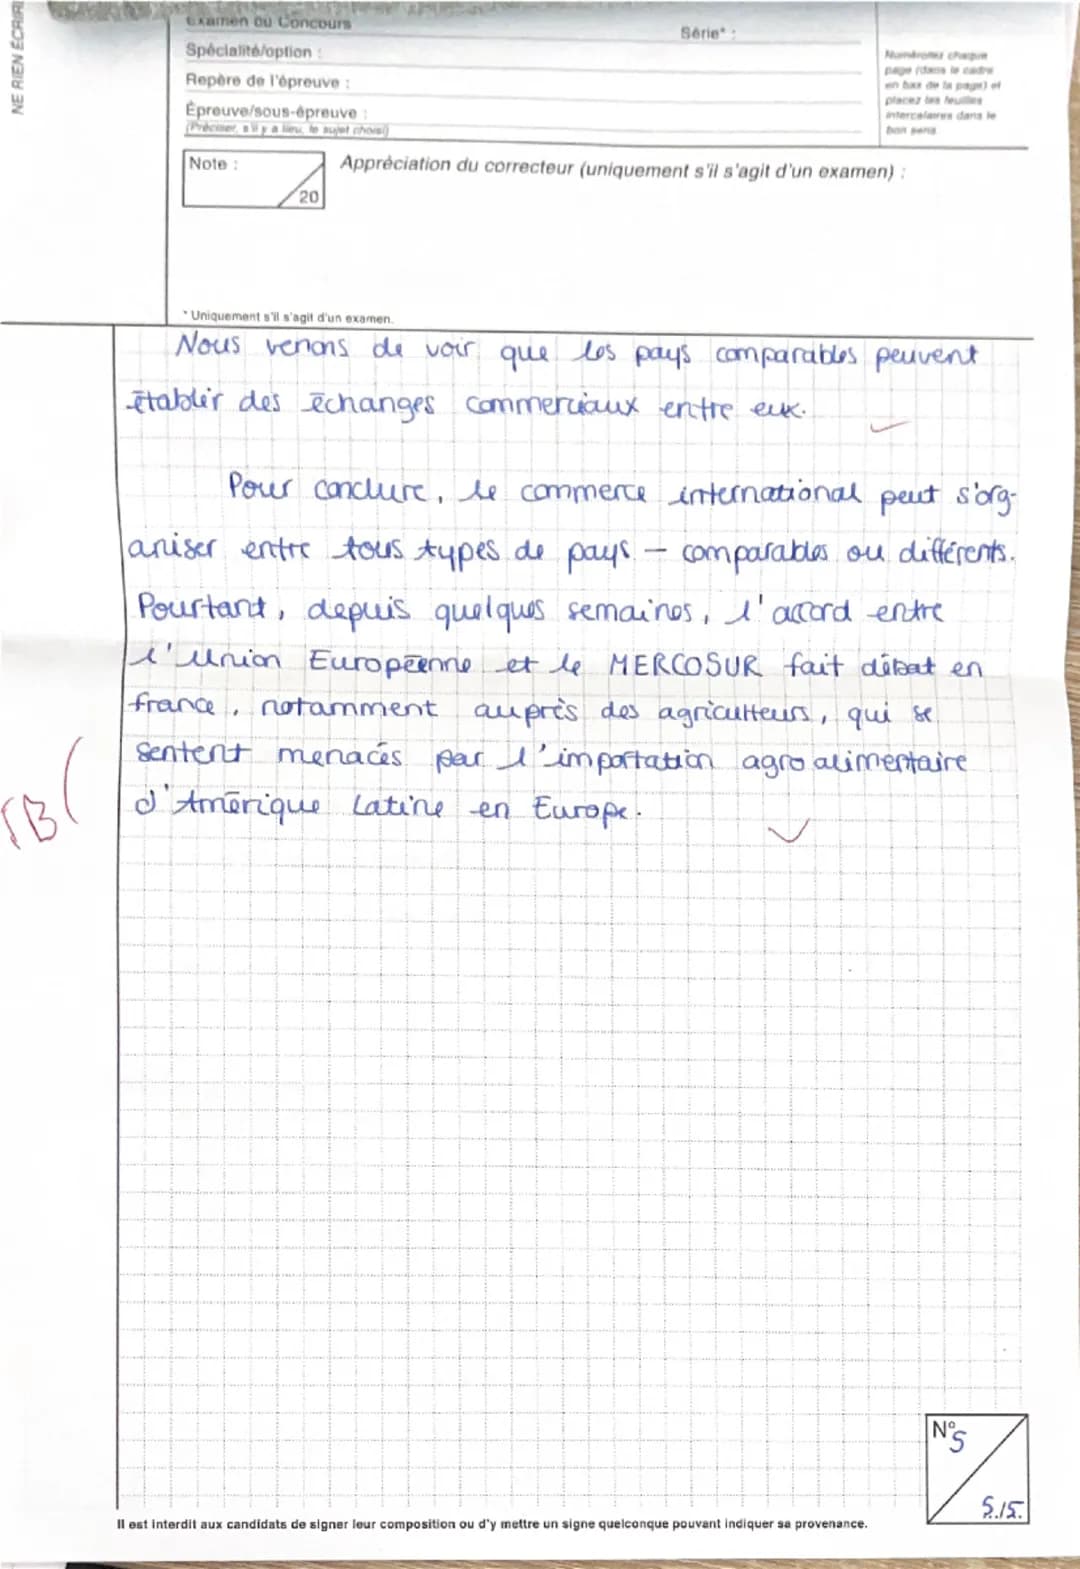 NE RIEN ÉCRIRE
Examen ou Concours
Série* :
Spécialité/option :
Repère de l'épreuve :
Épreuve/sous-épreuve :
(Préciser, s'il y a lieu, le sujet choisi)
Numérotez chaque
page (dans le cadre
en bas de la page) et
placez les feuilles
intercalaires dans le
bon sens
Note :
20
Appréciation du correcteur (uniquement s'il s'agit d'un examen) :
* Uniquement s'il s'agit d'un examen.
Nous venons de voir que les pays comparables peuvent
établir des échanges commerciaux entre eux.
Pour conclure, le commerce international peut s'org-
aniser entre tous types de pays - comparables ou différents.
Pourtant, depuis quelques semaines, l'accord entre
l'Union Européenne et le MERCOSUR fait débat en
france, notamment auprès des agriculteurs, qui se
sentent menacés par l'importation agroalimentaire
d'Amérique Latine en Europe.
TB
N°5
5.15.
Il est interdit aux candidats de signer leur composition ou d'y mettre un signe quelconque pouvant indiquer sa provenance.